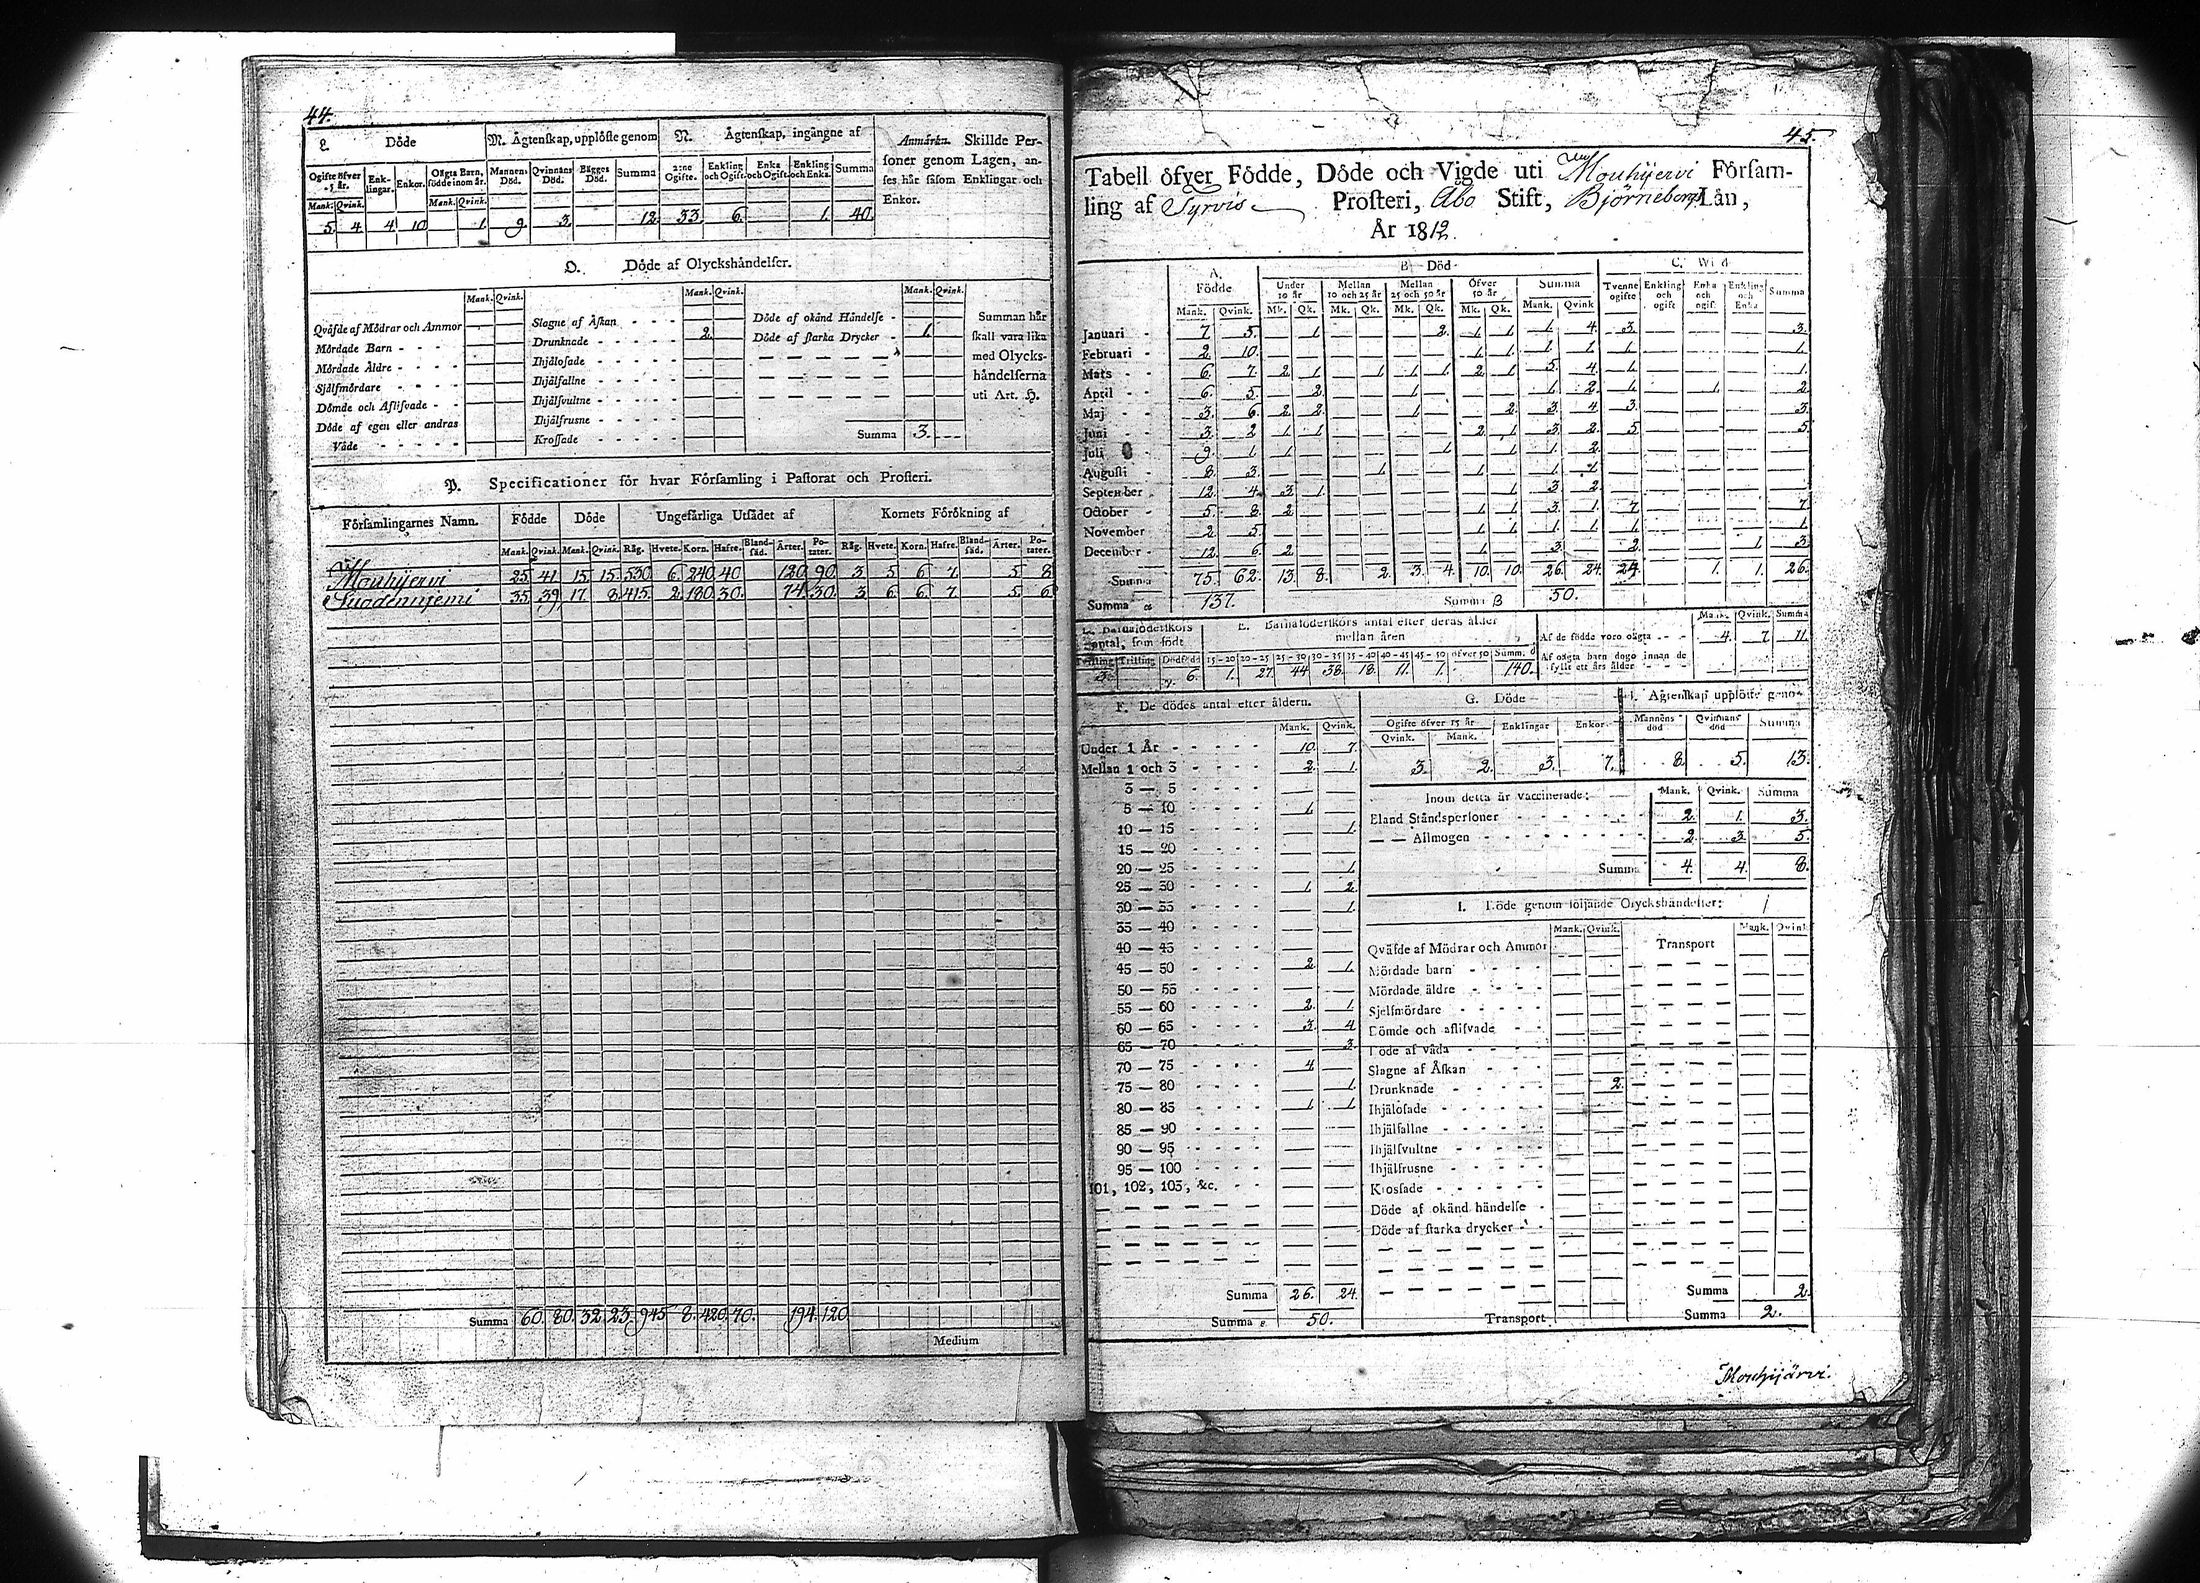 44.
L. Döde
N. Ägtenskap, upplöste genom
N. Ägtenskap, ingångne af
Anmärkn. Skillde Per-
soner genom Lagen, an-
ses här såsom Enklingar och
Enkor.
Ogifte öfver 15 år. Enk-lingar. Enkor. Oägta Barn, födde inom år. Mannens Död. Qvinnans Död. Bägges Död. Summa 2:ne Ogifte. Enkling och Ogift. Enka och Ogift. Enkling och Enka. Summa
Mank. Qvink. Mank. Qvink.
5. 4 4 10 1. 9. 3. 12. 33. 6. 1. 40.
O. Döde af Olyckshändelser.
Mank. Qvink. Mank. Qvink. Mank. Qvink.
Qväfde af Mödrar och Ammor
Mördade Barn
Mördade Äldre
Självmördare
Dömde och Aflifvade
Döde af egen eller andras
Våde
Slagne af Åskan
Drunknade 2.
Ihjälosade
Ihjälfallne
Ihjälsvultne
Ihjälfrusne
Krossade
Döde af okänd Händelse
Döde af starka Drycker 1.
Summa 3.
Summan här
skall vara lika
med Olycks-
händelserna
uti Art. H.
P. Specificationer för hvar Församling i Pastorat och Prosteri.
Församlingarnes Namn. Födde Döde Ungefärliga Utsädet af Kornets Förökning af
Mank. Qvink. Mank. Qvink. Råg. Hvete. Korn. Hafre. Bland-säd. Ärter. Po-tater. Råg. Hvete. Korn. Hafre. Bland-säd. Ärter. Po-tater.
Mouhijervi 25. 41. 15. 15. 530. 6. 240. 40 120. 90. 3. 5. 6. 7. 5. 8.
Suodenniemi 35. 39. 17. 8. 415. 2. 180. 30. 74. 30. 3. 6. 6. 7. 5. 6.
Summa 60. 80. 32. 23. 945. 8. 420. 70. 194. 120.
Medium
45.
Tabell öfver Födde, Döde och Vigde uti Mouhijervi Församling af Tyrvis Prosteri, Åbo Stift, Björneborgs Län,
År 1812.
A. Födde B. Död C. Wigd
Under 10 år Mellan 10 och 25 år Mellan 25 och 50 år Öfver 50 år Summa Tvenne ogifte Enkling och ogift Enka och ogift Enkling och Enka Summa
Mank. Qvink. Mk. Qk. Mk. Qk. Mk. Qk. Mk. Qk. Mank. Qvink
Januari 7. 5. 1. 2. 1. 1. 1. 4. 3. 3.
Februari 2. 10. 1. 1. 1. 1. 1. 1.
Mars 6. 7. 2. 1. 1. 1. 1. 2. 1. 5. 4. 1. 1.
April 6. 5. 2. 1. 1. 2. 1. 1. 2.
Maj 3. 6. 2. 2. 1. 2. 3. 4. 3. 3.
Juni 3. 2. 1. 1. 2. 1. 3. 2. 5. 5.
Juli 9. 1. 1. 1. 1. 1. 2.
Augusti 8. 3. 1. 1. 1. 1.
September 12. 4. 3. 1. 1. 3. 2.
October 5. 8. 2. 1. 1. 3. 1. 7. 7.
November 2. 5. 1. 1. 1. 1. 1. 1.
December 12. 6. 2. 1. 3. 2. 1. 3.
Summa 75. 62. 13. 8. 2. 3. 4. 10. 10. 26. 24. 24. 1. 1. 26.
Summa 137. Summa B 50.
E. Barnaföderskors antal efter deras ålder mellan åren
Tvilling Trilling Dödfödd 15-20 20-25 25-30 30-35 35-40 40-45 45-50 öfver 50 Summa
3. 6. 1. 27. 44 38. 18. 11. 1. 140.
Mank. Qvink. Summa
Af de födde voro oägta 4. 7. 11.
Af oägta barn dogo innan de
fyllt ett års ålder
F. De dödes antal efter åldern.
Mank. Qvink.
Under 1 År 10. 7.
Mellan 1 och 3 2. 1.
3 — 5
5 — 10 1.
10 — 15 1.
15 — 20
20 — 25 1.
25 — 30 1. 2.
30 — 35 1.
35 — 40
40 — 45
45 — 50 2. 1.
50 — 55
55 — 60 2. 1.
60 — 65 3. 4
65 — 70 3.
70 — 75 4.
75 — 80 1.
80 — 85 1. 1.
85 — 90
90 — 95
95 — 100
101, 102, 103, &c.
Summa 26. 24.
Summa 50.
G. Döde
Ogifte öfver 15 år Enklingar Enkor
Qvink. Mank.
3. 2. 3. 7.
H. Ägtenskap upplöste genom
Mannens död Qvinnans död Summa
8. 5. 13.
Inom detta år vaccinerade: Mank. Qvink. Summa
Bland Ståndspersoner 2. 1. 3.
— — Allmogen 2. 3. 5.
Summa 4. 4. 8.
I. Döde genom följande Olyckshändelser:
Mank. Qvink. Transport Mank. Qvink
Qväfde af Mödrar och Ammor
Mördade barn
Mördade äldre
Sjelfmördare
Dömde och aflifvade
Döde af våda
Slagne af Åskan
Drunknade 2.
Ihjälosade
Ihjälfallne
Ihjälsvultne
Ihjälfrusne
Krossade
Döde af okänd händelse
Döde af starka drycker
Summa 2.
Transport Summa 2.
Mouhijärvi.